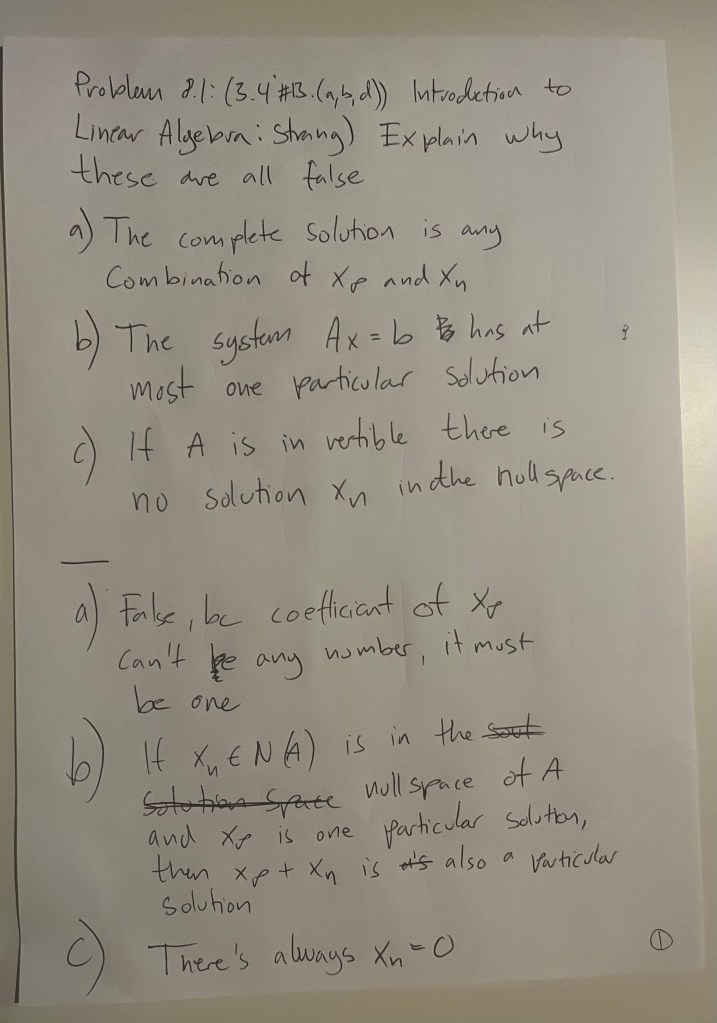 Problem 8.1: (3.4 #13.(a,b,d)) Introduction to
Linear Algebra: Strang) Explain why
these are all false
a) The complete solution is any
Combination of xp and xn
b) The system Ax = b has at
most one particular solution
c) If A is invertible there is
no solution xn in the nullspace.
a) False, bc coefficient of xp
can't be any number, it must
be one
b) If xn ∈ N(A) is in the
nullspace of A
and xp is one particular solution,
then xp + xn is also a particular
solution
c) There's always xn = 0
①